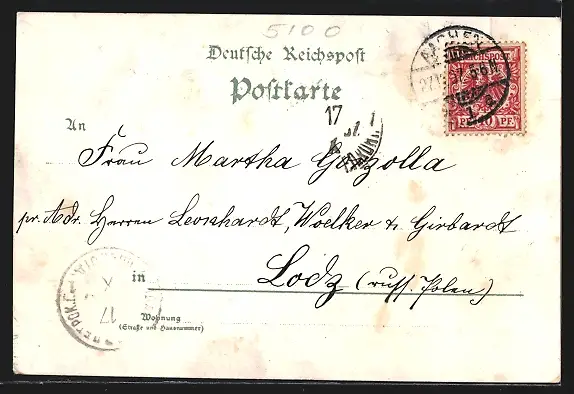 5100
Deutsche Reichspost
Postkarte
AACHEN
REICHSPOST
PF 10 PF
17
An
Frau Martha Gozzolla
pr. Adr. Herren Leonhardt, Woelker & Girbardt
in Lodz (russ. Polen)
X
17
Wohnung
(Straße und Hausnummer)